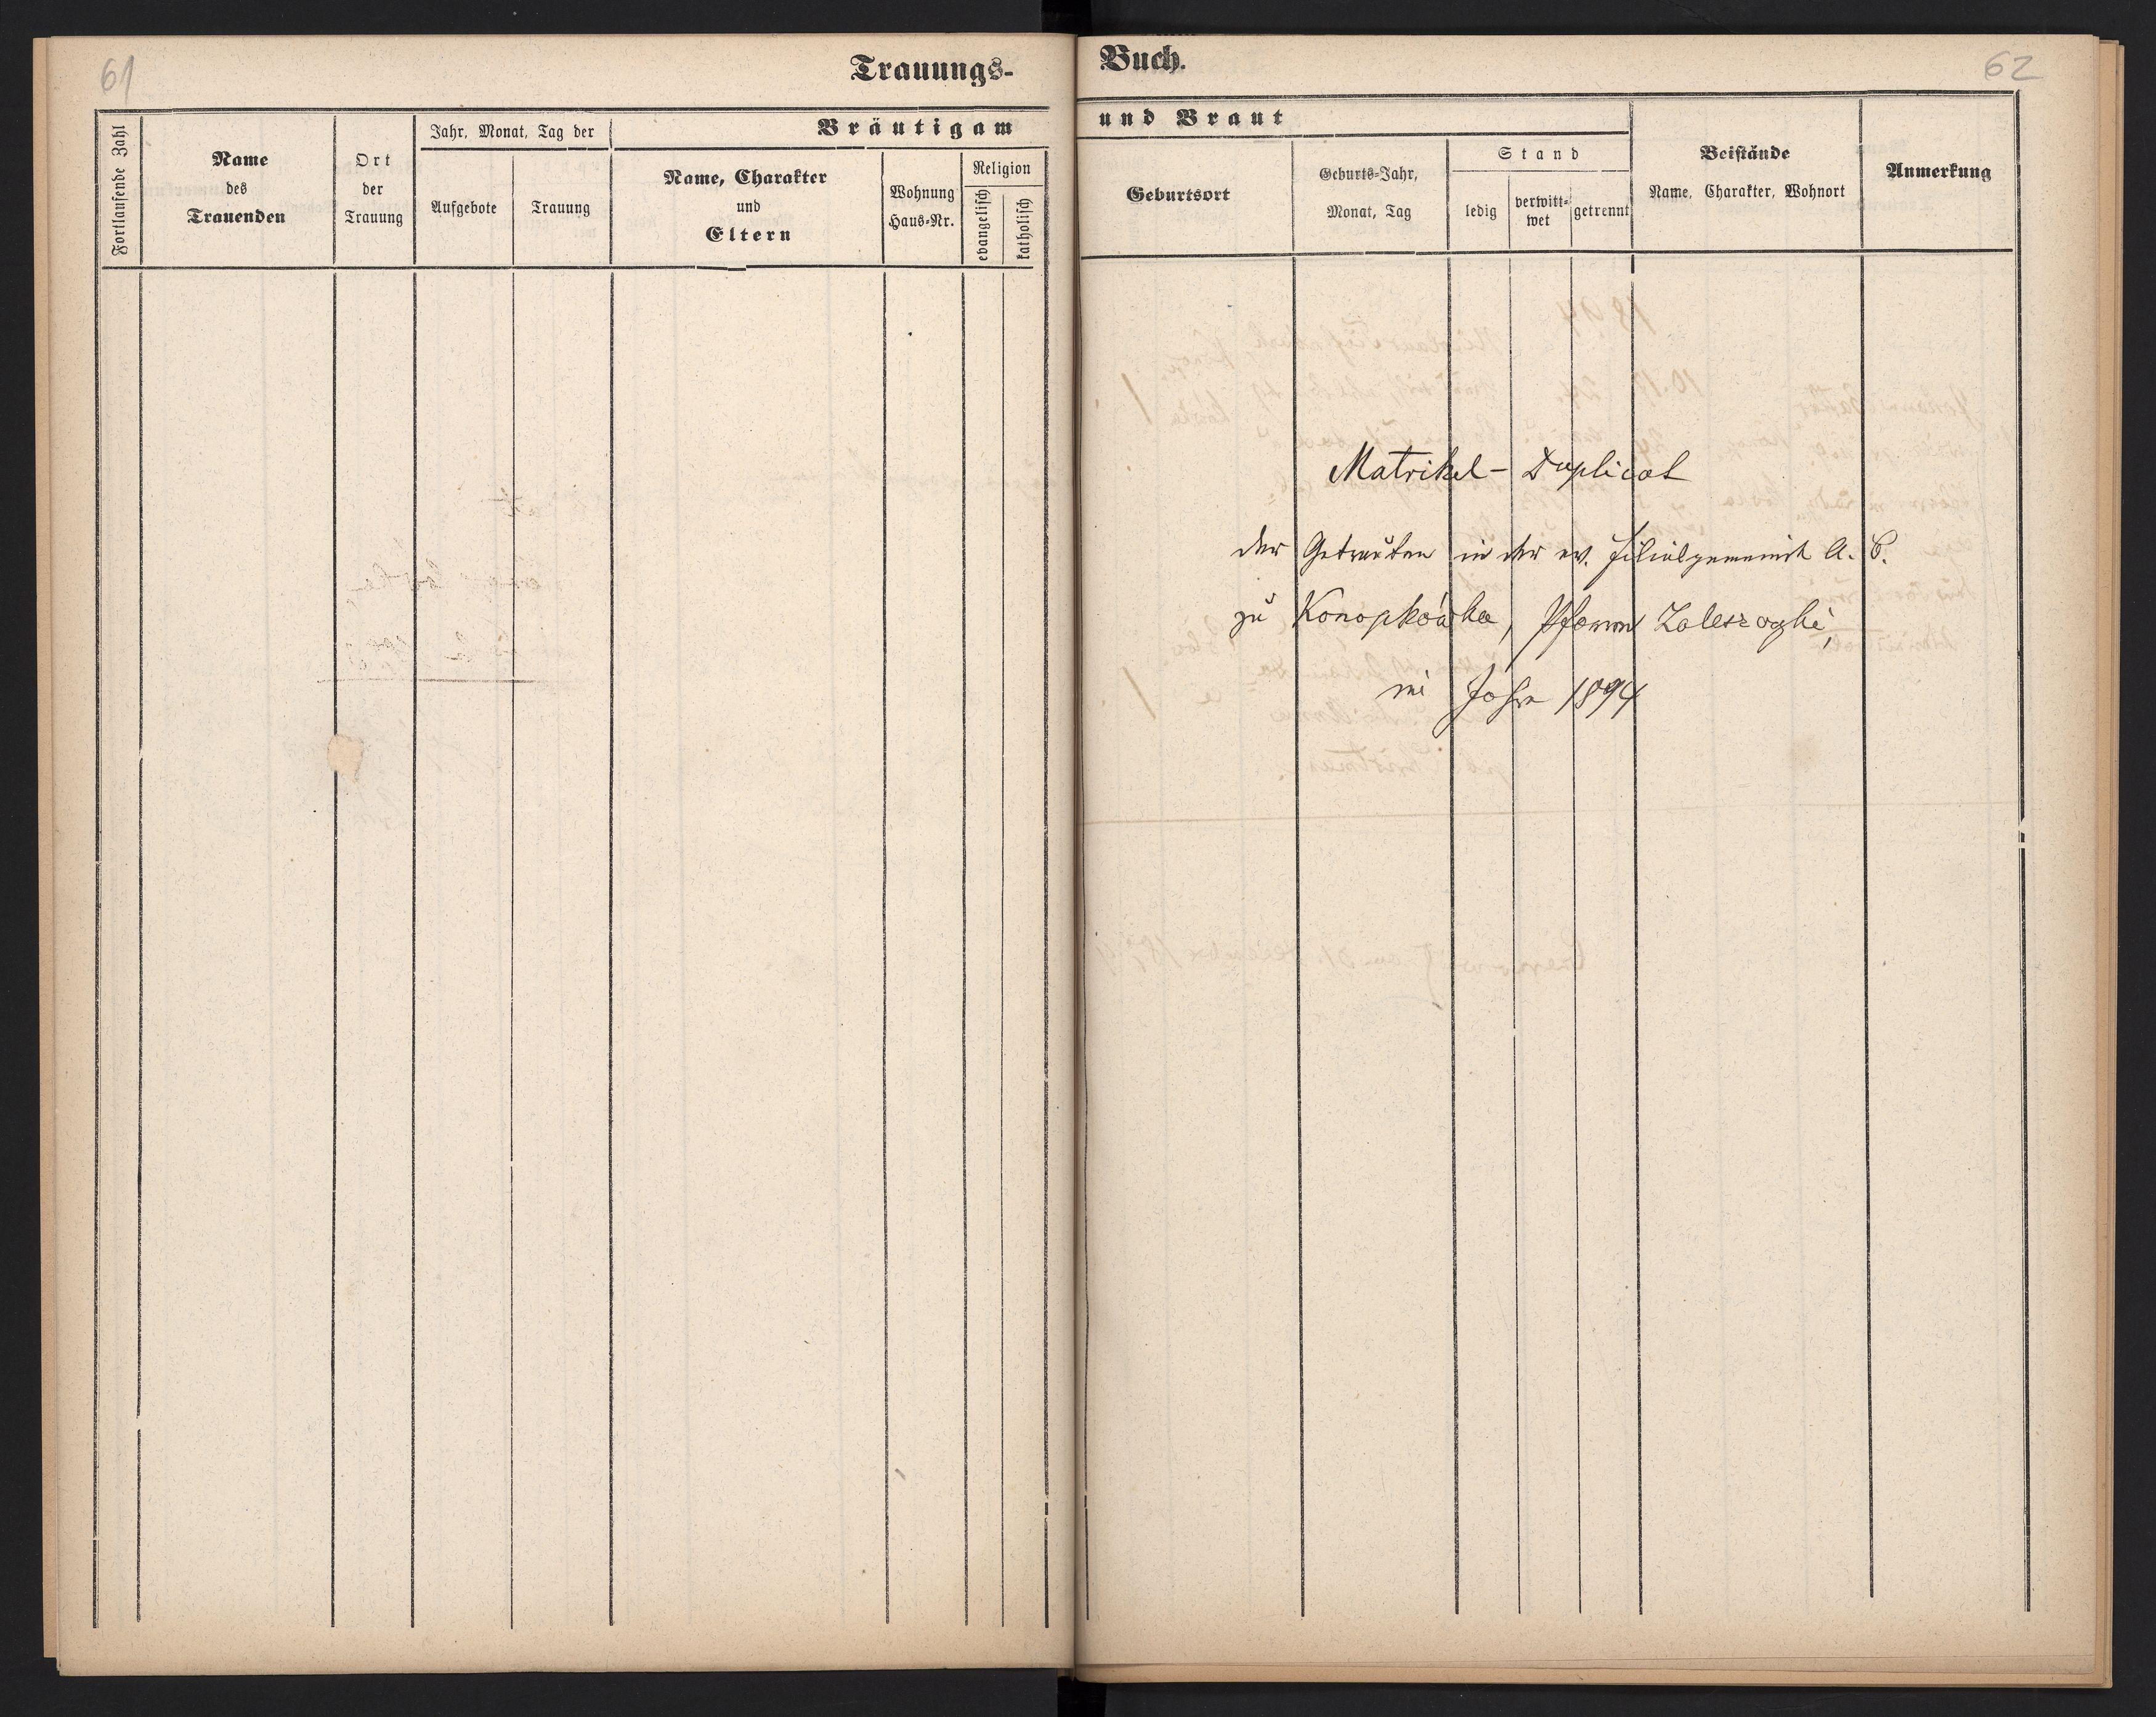 61
Trauungs-
Fortlaufende Zahl
Name
des
Trauenden
Ort
der
Trauung
Jahr, Monat, Tag der
Aufgebote
Trauung
Bräutigam
Name, Charakter
und
Eltern
Wohnung
Haus-Nr.
Religion
evangelisch
katholisch
Buch.
62
und Braut
Geburtsort
Geburts-Jahr,
Monat, Tag
Stand
ledig
verwitt-
wet
getrennt
Beistände
Name, Charakter, Wohnort
Anmerkung
Matrikel - Duplicat
der Getrauten in der ev. Filialgemeinde A. C.
zu Konopkówka, Pfarre Zaleszczyki,
im Jahre 1894